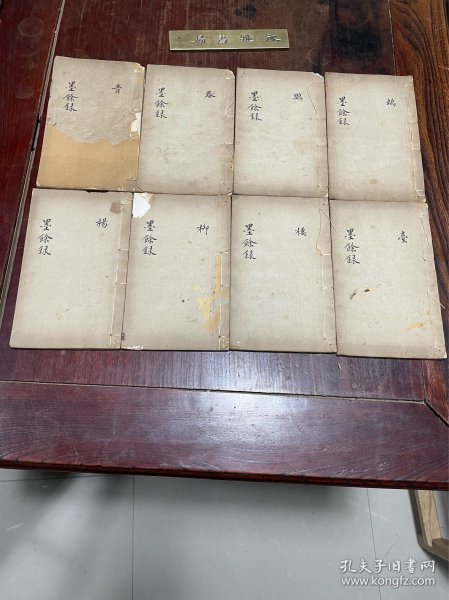 青
墨餘錄
春
墨餘錄
鸚
墨餘錄
鵡
墨餘錄
楊
墨餘錄
柳
墨餘錄
樓
墨餘錄
臺
墨餘錄
孔夫子旧书网
www.kongfz.com